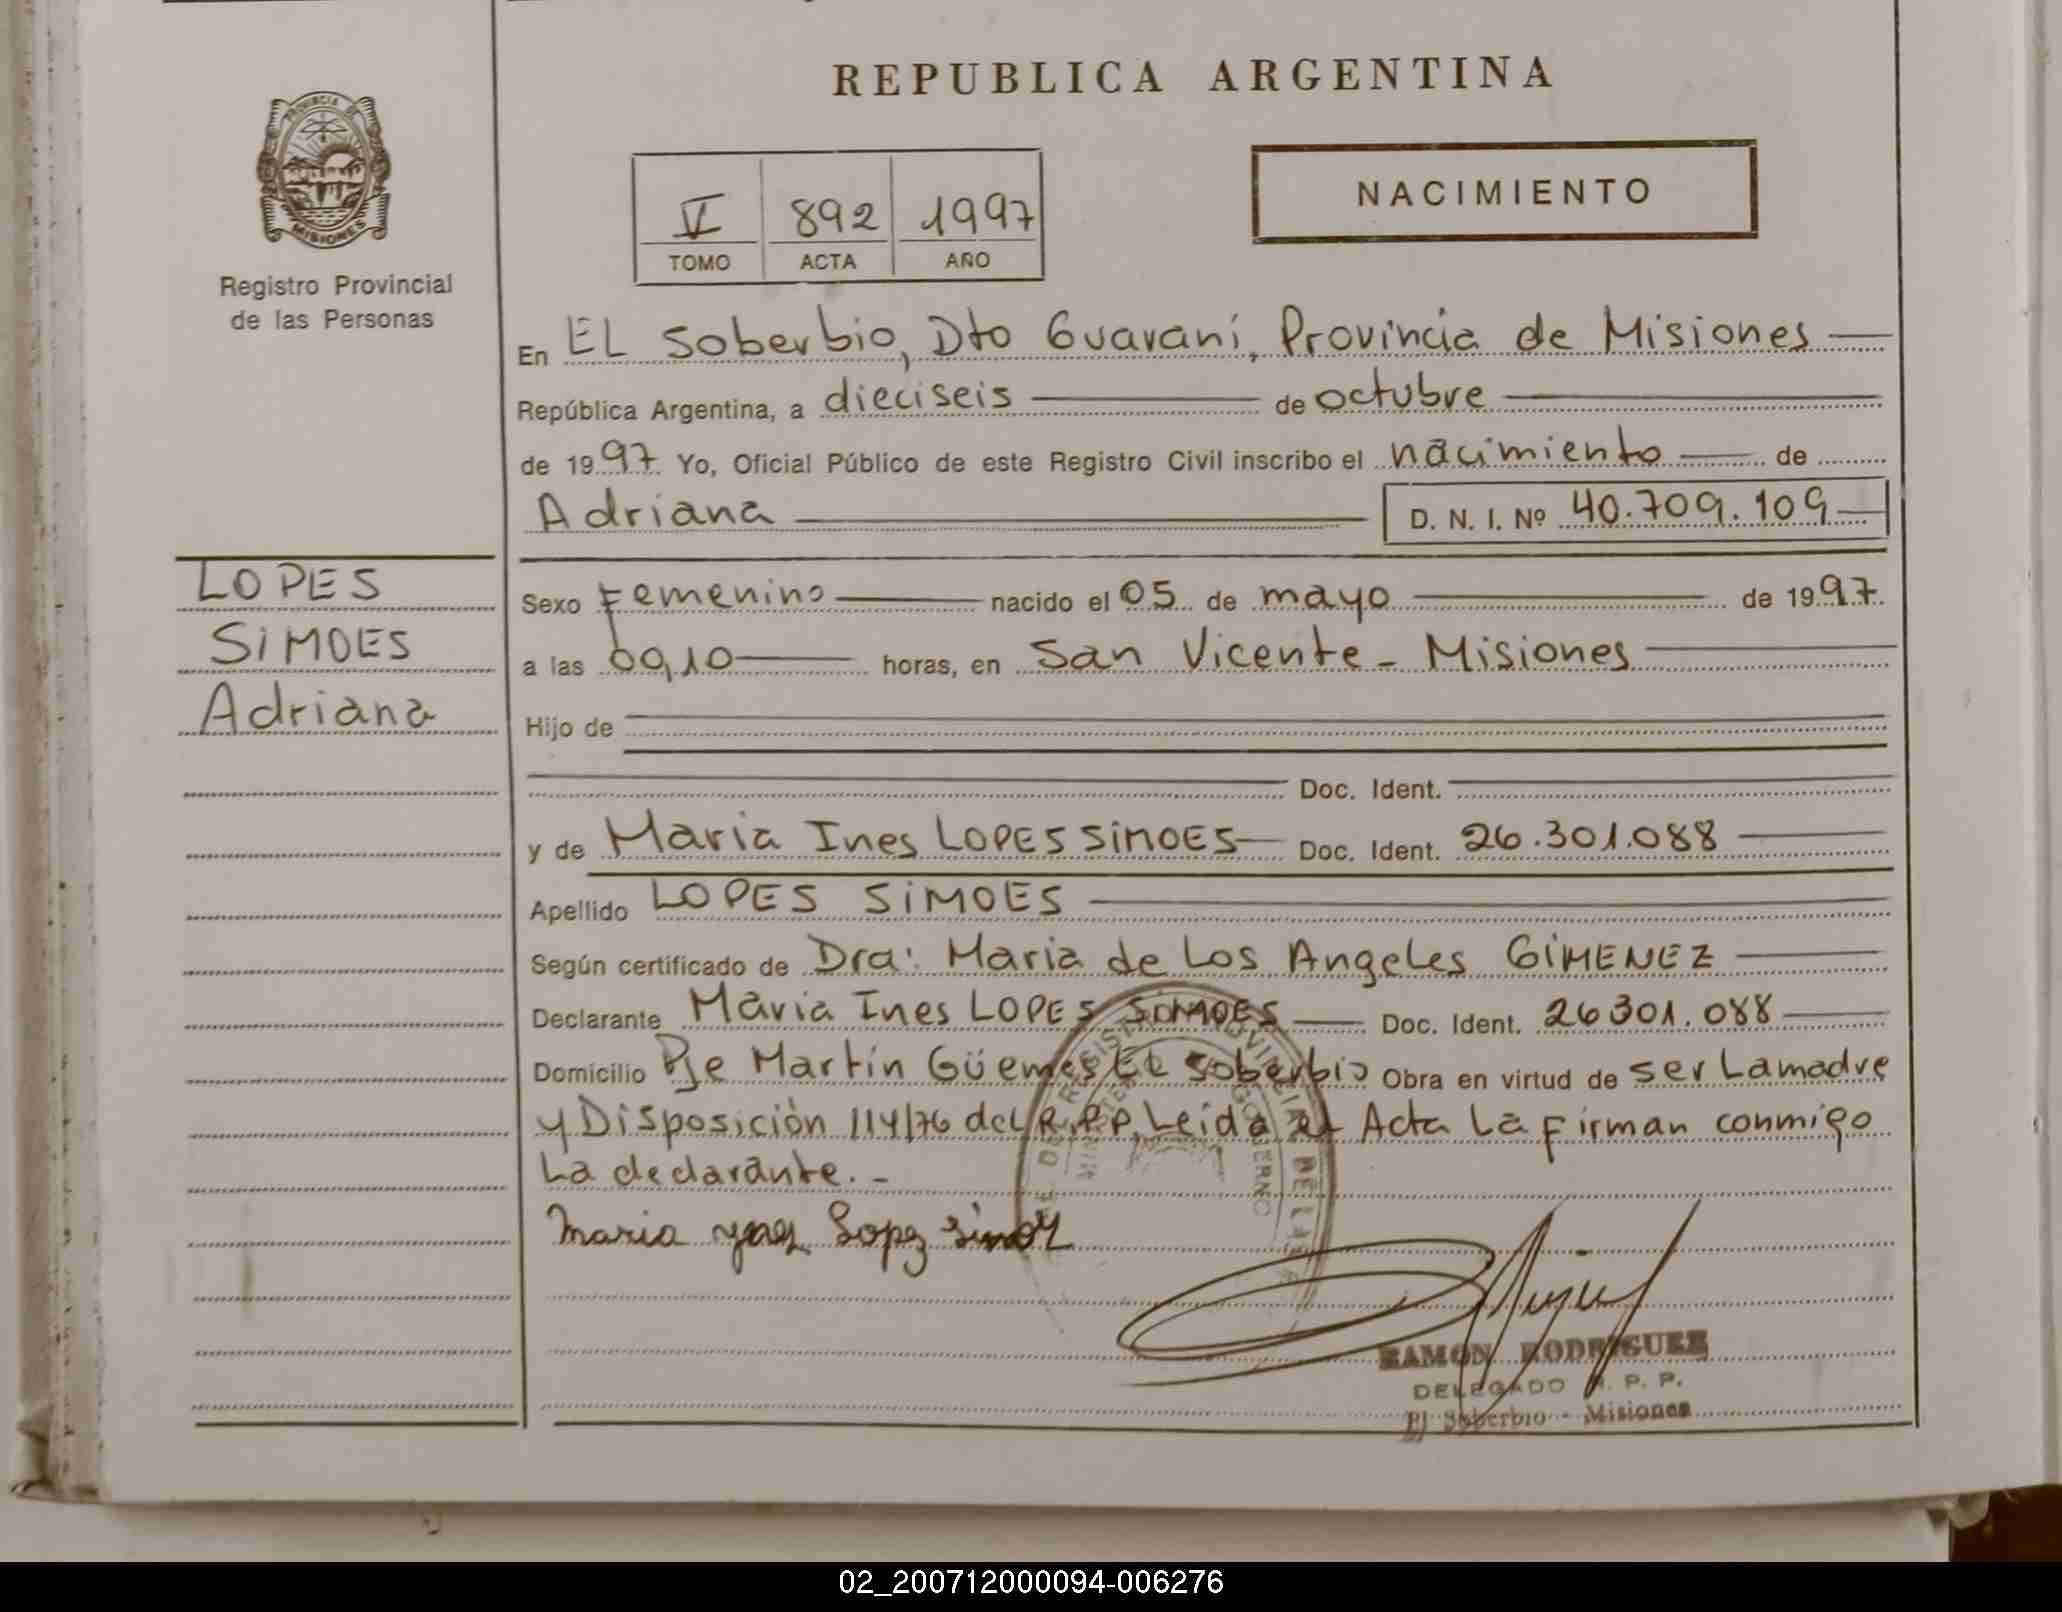 REPUBLICA ARGENTINA
PROVINCIA DE MISIONES
Registro Provincial
de las Personas
V 892 1997
TOMO ACTA AÑO
NACIMIENTO
En EL Soberbio, Dto Guaraní, Provincia de Misiones
República Argentina, a dieciseis de octubre
de 1997 Yo, Oficial Público de este Registro Civil inscribo el nacimiento de
Adriana D. N. I. Nº 40.709.109
LOPES
SIMOES
Adriana
Sexo Femenino nacido el 05 de mayo de 1997
a las 09,10 horas, en San Vicente - Misiones
Hijo de
Doc. Ident.
y de Maria Ines LOPES SIMOES Doc. Ident. 26.301.088
Apellido LOPES SIMOES
Según certificado de Dra: Maria de Los Angeles GIMENEZ
Declarante Maria Ines LOPES SIMOES Doc. Ident. 26301.088
Domicilio Pje Martín Güemes El Soberbio Obra en virtud de ser La madre
y Disposición 114/76 del R.P.P, Leida el Acta La Firman conmigo
La declarante. -
Maria Ynes Lopes Simoes
RAMON RODRIGUEZ
DELEGADO R. P. P.
El Soberbio - Misiones
02_200712000094-006276